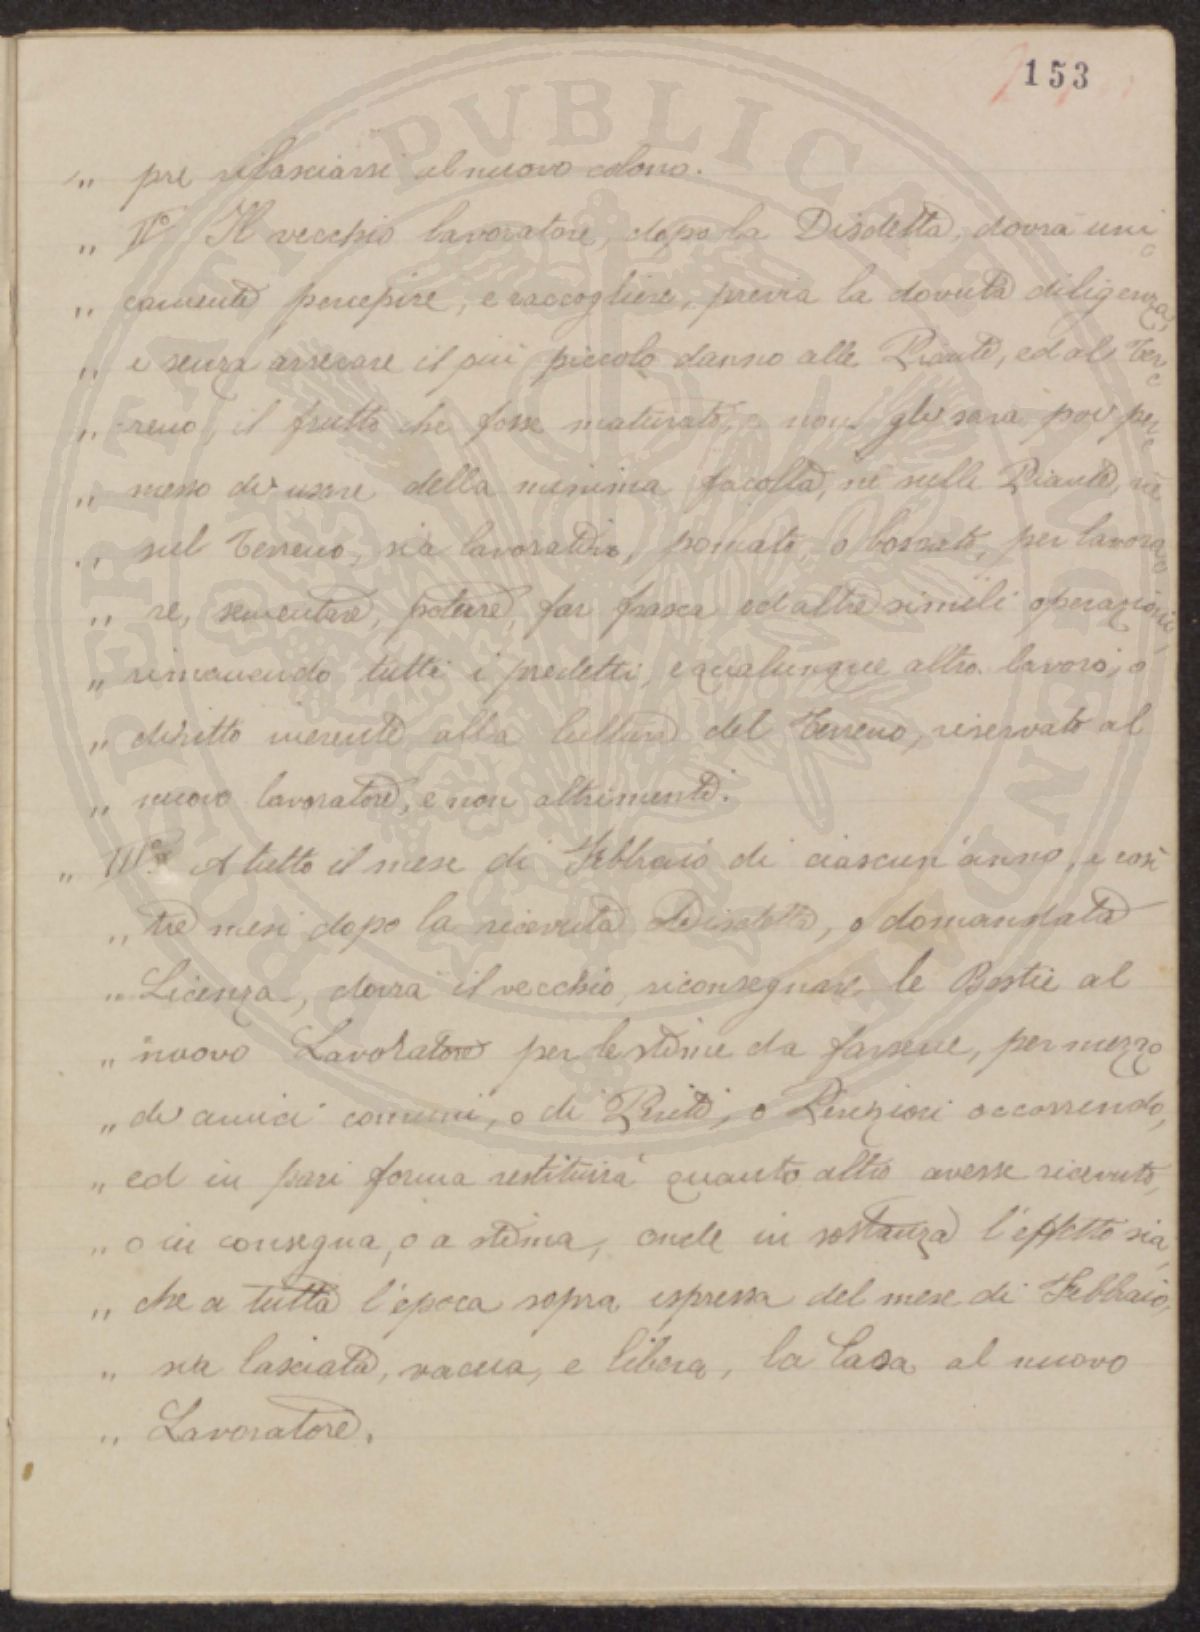 153
„ pre rilasciarsi al nuovo colono.
„ II.° Il vecchio lavoratore, dopo la Disdetta, dovrà uni
„ camente percepire, e raccogliere, previa la dovuta diligenza,
„ e senza arrecare il più piccolo danno alle Piante, ed al Ter
„ reno, il frutto che fosse maturato, e non gli sarà poi per
„ messo di usare della minima facoltà, nè nelle Piante, nè
„ nel Terreno, sia lavorativo, pomato, o boscato, per lavora
„ re, sementare, potare, far frasca ed altre simili operazioni,
„ rimanendo tutti i predetti, e qualunque altro lavoro, o
„ diritto inerente alla Cultura del Terreno, riservato al
„ nuovo lavoratore, e non altrimenti.
„ III.° A tutto il mese di Febbraio di ciascun'anno, e così
„ tre mesi dopo la ricevuta Disdetta, o domandata
„ Licenza, dovrà il vecchio riconsegnare le Bestie al
„ nuovo Lavoratore per le stime da farsene, per mezzo
„ di amici comuni, o di Periti, o Periziori occorrendo,
„ ed in pari forma restituirà quanto altro avesse ricevuto,
„ o in consegna, o a stima, onde in sostanza l'effetto sia,
„ che a tutta l'epoca sopra espressa del mese di Febbraio,
„ sia lasciata, vacua, e libera, la Casa al nuovo
„ Lavoratore.
PVBLICAE
PROSPERITATI
AVGENDAE